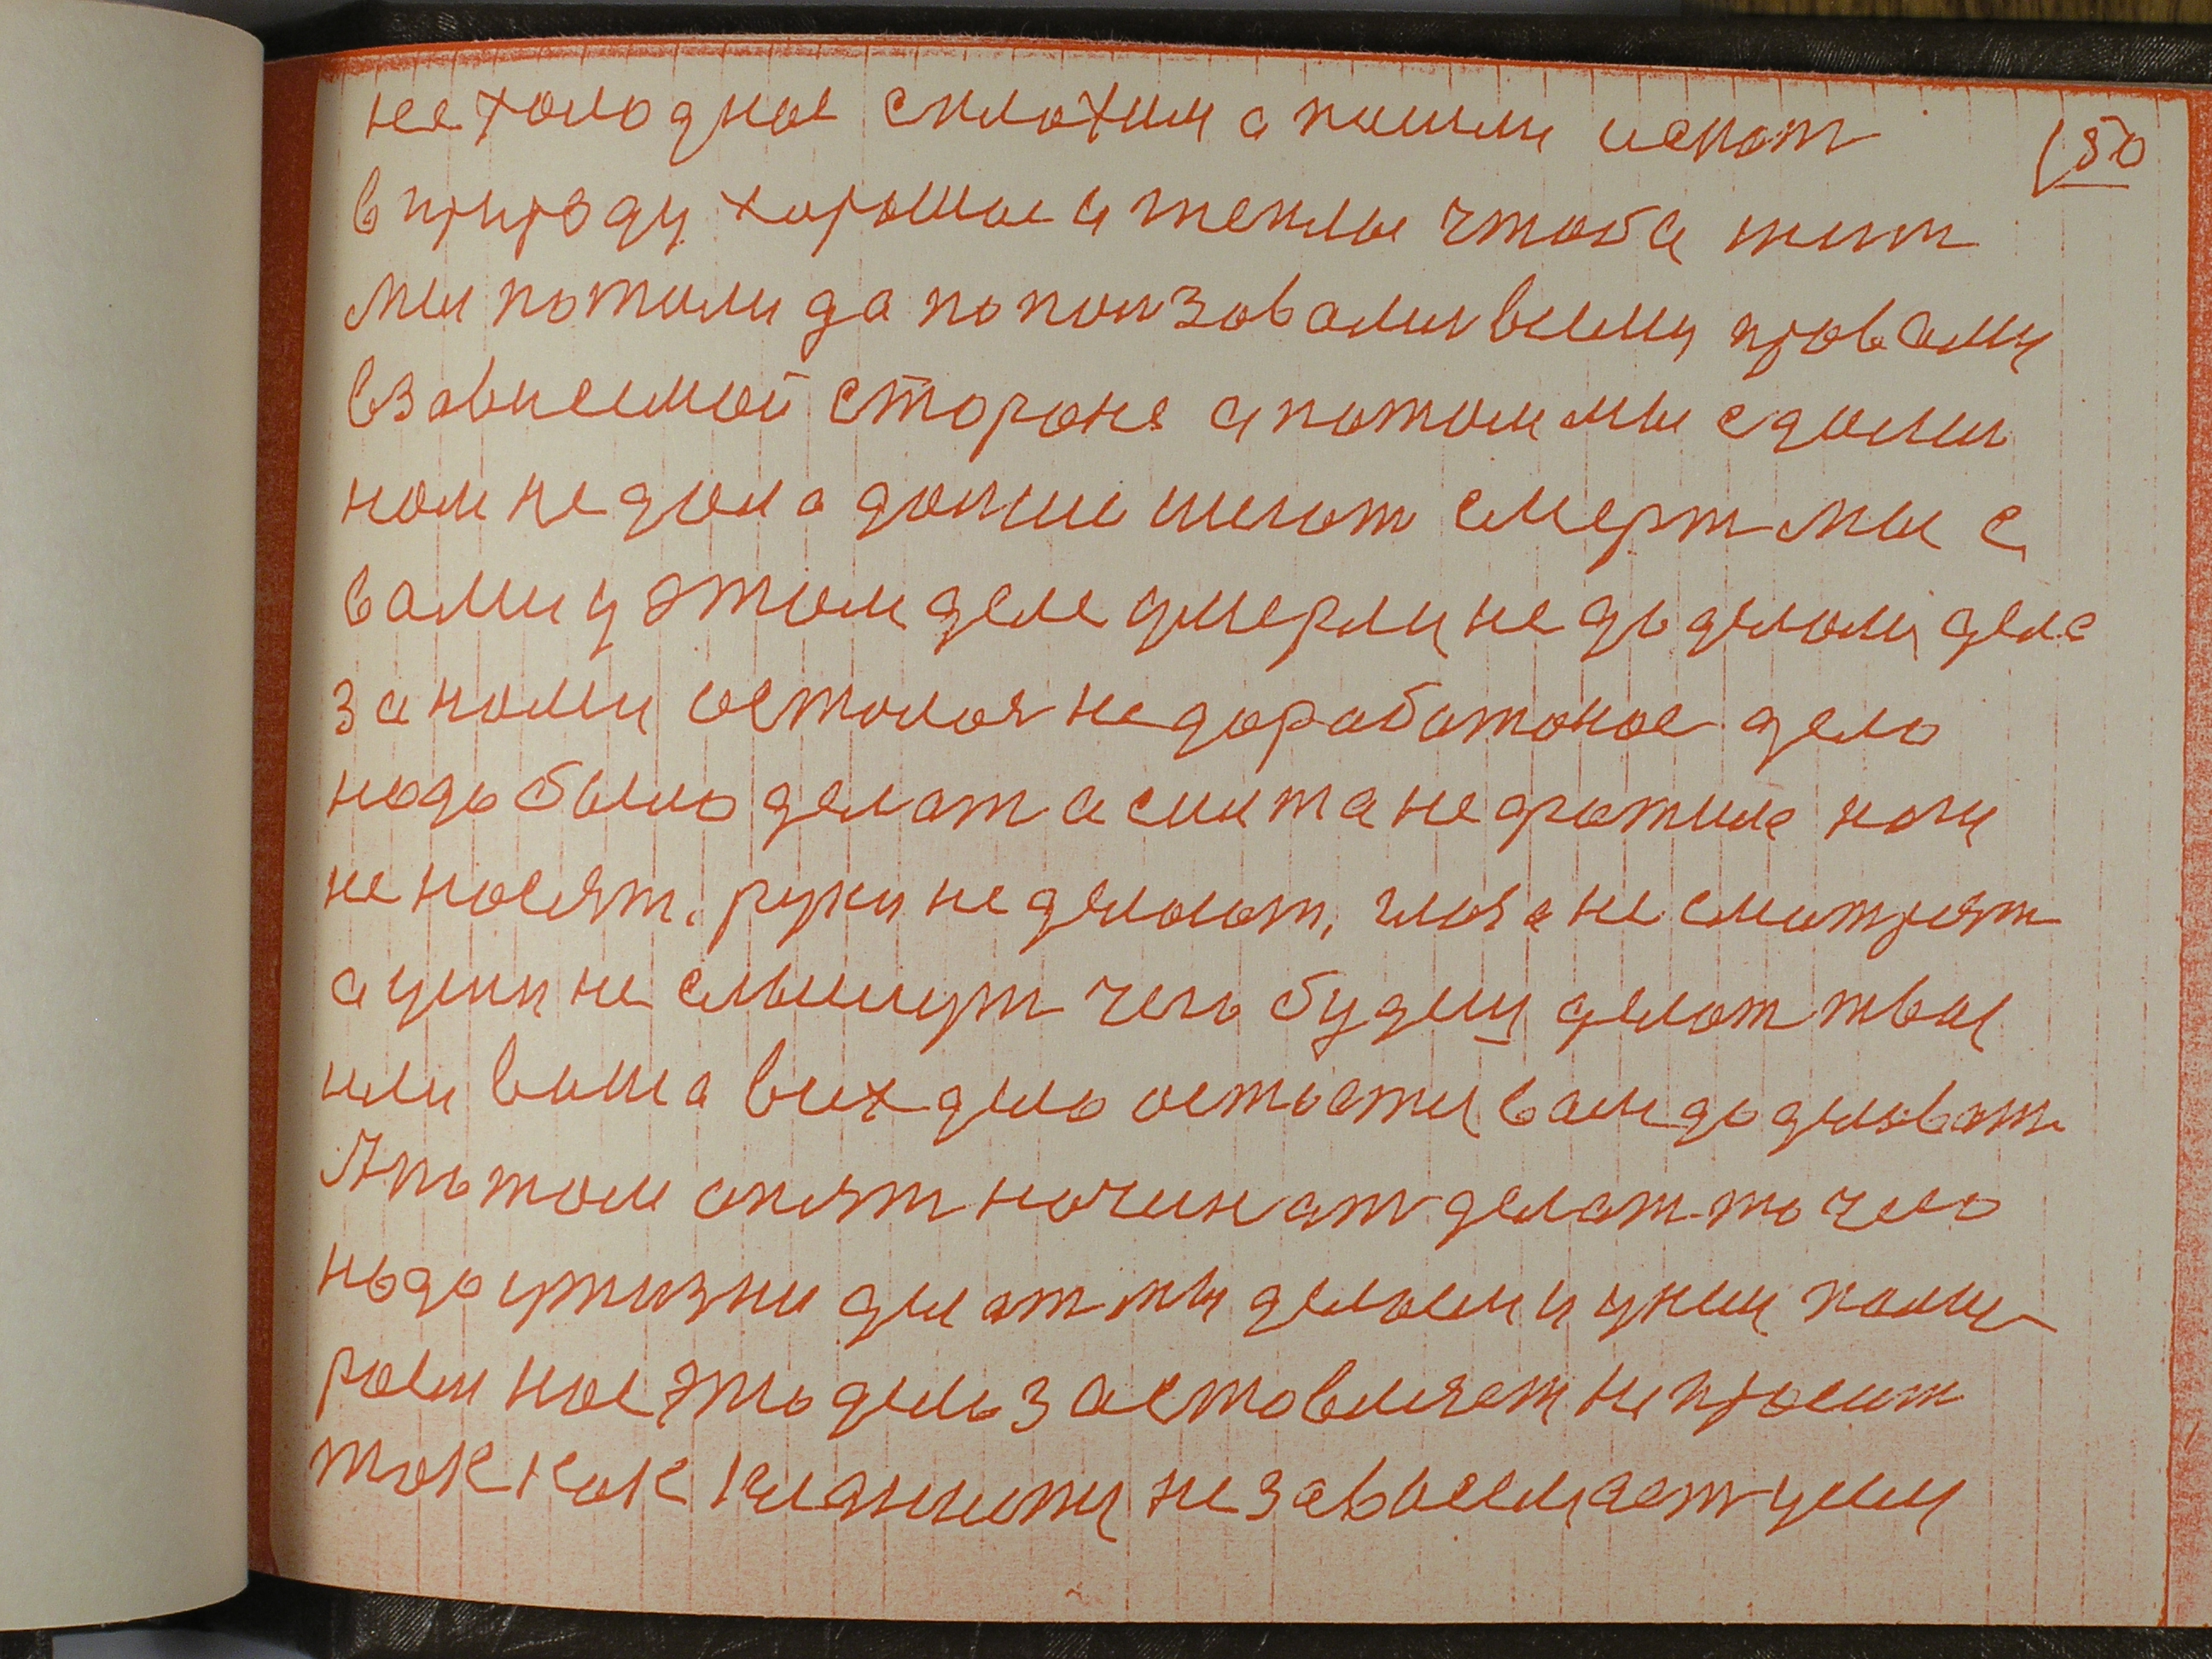 не холодное с плохим а пошли искат
150
в природу хорошое и теплое чтоба жит
мы пожили да попользовалис всему провами
в зависимой стороне а потом мы сдалис
нам не дала дальше шагат смерт мы с
вами у этом деле умерли не доделали дела
за нами осталос недоработоное дело
надо было делат а силита не фатила ноги
не носят. руки не делоют, глаза не смотрят
а уши не слышут чего будеш делат твое
или ваша всех дело остоется вам доделоват
А потом опят начинат делат то чего
надо у жизни делат мы делоем и у ней поми
роем нас это дело заставляет не просит
так как клянномы не зависемает уми